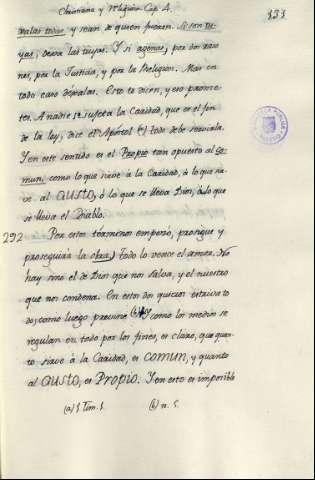 Christiana y Religiosa Cap. A.
131
malas todas, y sean de quien fueren. Si son tu-
yas, dexa las tuyas. Y si agenas, por dos razo-
nes, por la Justicia, y por la Religion. Mas en
todo caso dexalas. Esto te dicen, y eso prome-
tes. A nadie se sujeta la Caridad, que es el fin
de la ley, dice el Apostol (a) todo debe
Y en este sentido es el Propio tan opuesto al Co-
mun, como lo que sirve à la Caridad, à lo que sir-
ve al GUSTO, ò lo que se lleva Dios, à lo que
se lleva el Diablo.
292 Por estos terminos empezò, prosigue y
proseguirà la obra) Todo lo vence el amor. No
hay sino el de Dios que nos salva, y el nuestro
que nos condena. En estos dos quicios estriva to-
do; como luego previno (b) y como los medios se
regulan en todo por los fines, es claro, que quan-
to sirve à la Caridad, es COMUN, y quanto
al GUSTO, es PROPIO. Y en esto es imposible
(a) 1. Tim. 1. (b) n. 5.